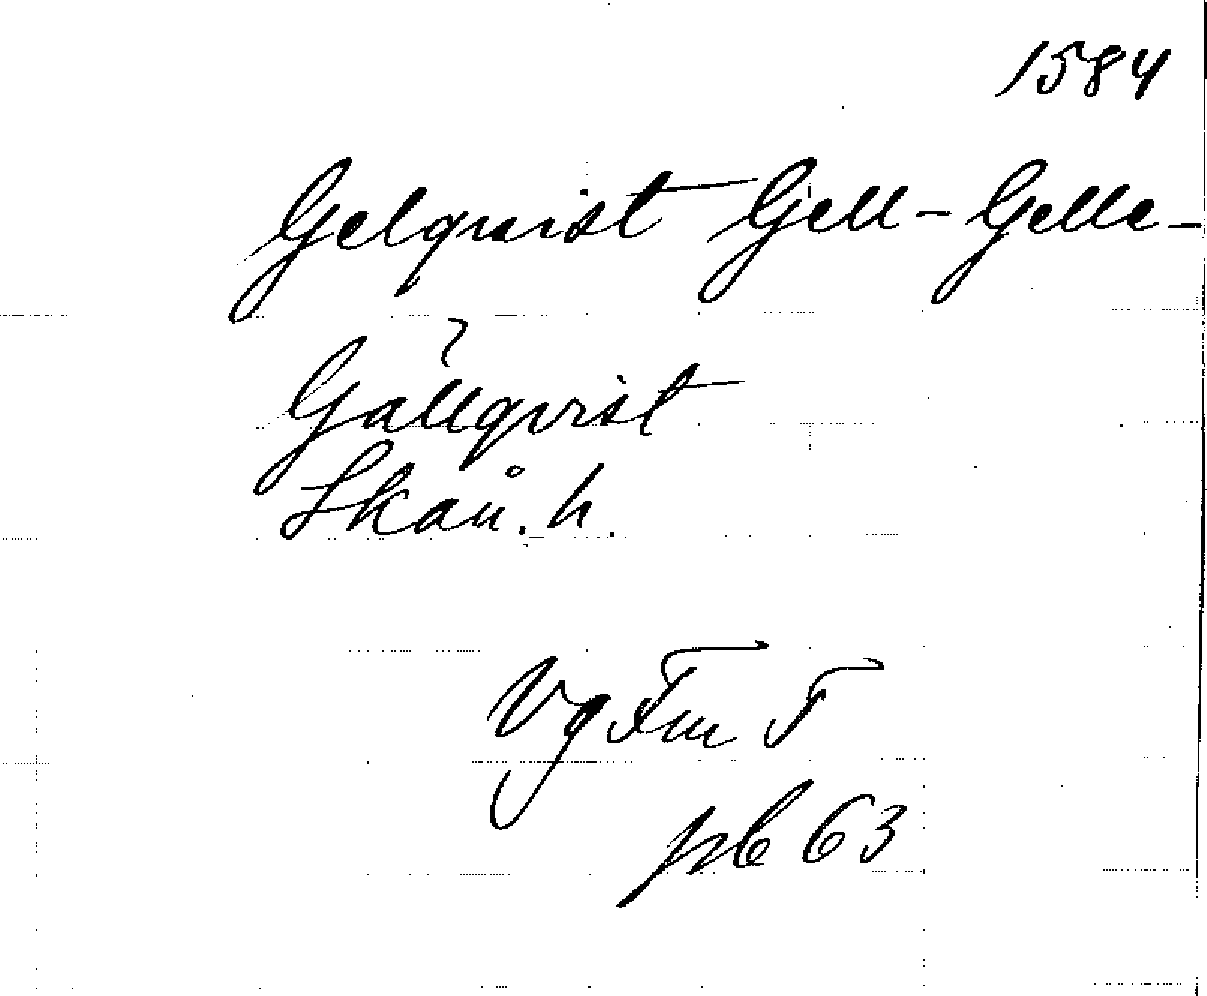 1584
Gelqvist Gjell- Gelle-
Gällqvist
Skån. h.
Vg Fm F
pb 63